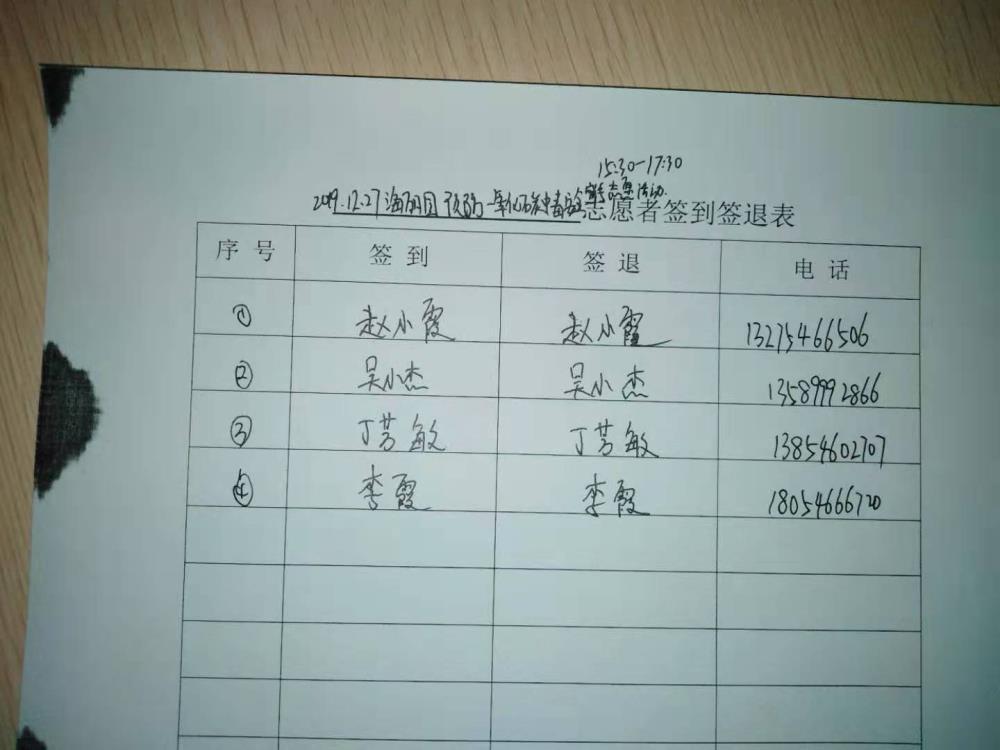 15:30-17:30
宣传志愿活动
2019.12.27海 团预防一氧化碳中毒 志愿者签到签退表
序号 签到 签退 电话
① 赵小霞 赵小霞 13275466506
② 吴小杰 吴小杰 13589992866
③ 丁芳敏 丁芳敏 13854602707
④ 李霞 李霞 18054666720